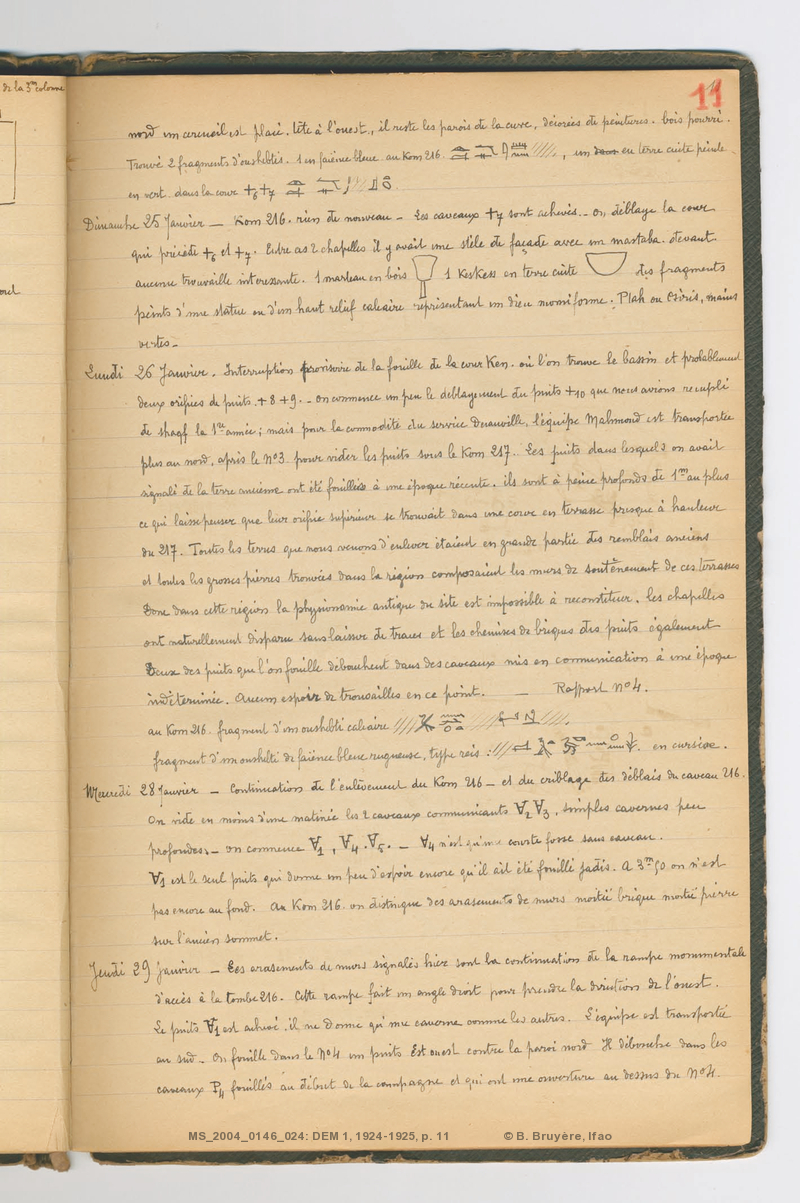 de la 3me colonne
11
nord un cercueil est placé. tête à l'ouest., il reste les parois de la cuve, décorées de peintures. bois pourri.
Trouvé 2 fragments d'oushebtis. 1 en faïence bleue au Kom 216. , un en terre cuite peinte
en vert. dans la cour +6+7
Dimanche 25 Janvier — Kom 216. rien de nouveau — Les caveaux +7 sont achevés. — On déblaye la cour
qui précède +6 et +7. Entre ces 2 chapelles il y avait une stèle de façade avec un mastaba. devant.
aucune trouvaille intéressante. 1 marteau en bois 1 Keskess en terre cuite des fragments
peints d'une statue ou d'un haut relief calcaire représentant un dieu momiforme. Ptah ou Osiris, mains
vertes —
Lundi 26 Janvier. Interruption provisoire de la fouille de la cour Ken. où l'on trouve le bassin et probablement
deux orifices de puits. +8 +9. — On commence un peu le déblayement du puits +10 que nous avions rempli
de shagf la 1re année ; mais pour la commodité du service Decauville, l'équipe Mahmoud est transportée
plus au nord, après le No3 pour vider les puits sous le Kom 217. Les puits dans lesquels on avait
signalé de la terre ancienne ont été fouillés à une époque récente. ils sont à peine profonds de 1m au plus
ce qui laisse penser que leur orifice supérieur se trouvait dans une cour en terrasse presque à hauteur
du 217. Toutes les terres que nous venons d'enlever étaient en grande partie des remblais anciens
et toutes les grosses pierres trouvées dans la région composaient les murs de soutènement de ces terrasses
Donc dans cette région la physionomie antique du site est impossible à reconstituer. les chapelles
ont naturellement disparu sans laisser de traces et les chemises de briques des puits également
Deux des puits que l'on fouille débouchent dans des caveaux mis en communication à une époque
indéterminée. Aucun espoir de trouvailles en ce point. — Rapport No4.
au Kom 216. fragment d'un oushebti calcaire
fragment d'un oushebti de faïence bleue rugueuse, type reis : en cursive.
Mercredi 28 Janvier — Continuation de l'enlèvement du Kom 216 — et du criblage des déblais du caveau 216.
On vide en moins d'une matinée les 2 caveaux communicants ∀2 ∀3, simples cavernes peu
profondes. — on commence ∀1, ∀4. ∀5. — ∀4 n'est qu'une courte fosse sans caveau.
∀1 est le seul puits qui donne un peu d'espoir encore qu'il ait été fouillé jadis. A 3m50 on n'est
pas encore au fond. Au Kom 216. on distingue des arasements de murs moitié brique moitié pierre
sur l'ancien sommet.
Jeudi 29 Janvier — Les arasements de murs signalés hier sont la continuation de la rampe monumentale
d'accès à la tombe 216. Cette rampe fait un angle droit pour prendre la direction de l'ouest.
Le puits ∀1 est achevé. il ne donne qu'une caverne comme les autres. L'équipe est transportée
au sud. — On fouille dans le No4 un puits Est ouest contre la paroi nord Il débouche dans les
caveaux P4 fouillés au début de la campagne et qui ont une ouverture au dessus du No4.
MS_2004_0146_024: DEM 1, 1924-1925, p. 11 © B. Bruyère, Ifao